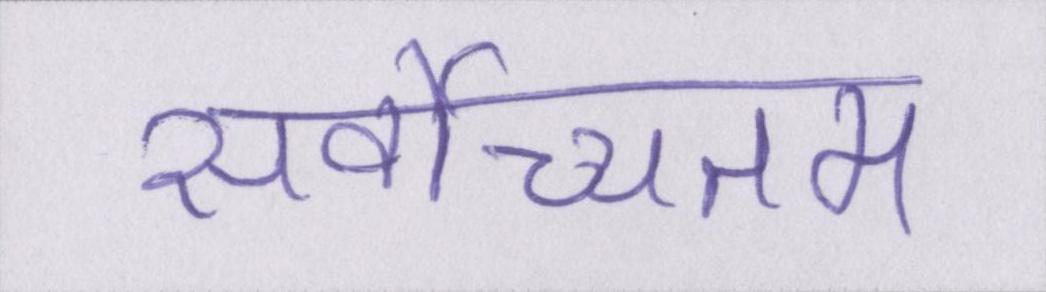 सर्वोच्चतम